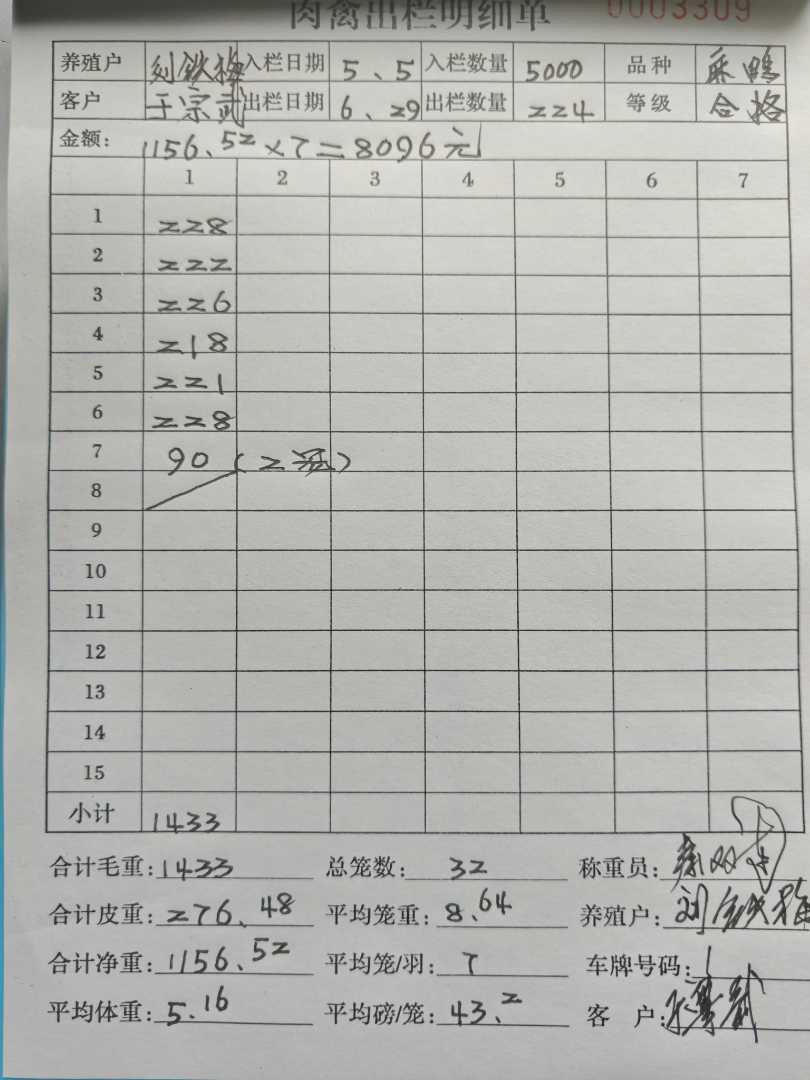 肉禽出栏明细单 0003309
养殖户 刘铁梅 入栏日期 5、5 入栏数量 5000 品种 麻鸭
客户 于宗武 出栏日期 6、29 出栏数量 224 等级 合格
金额： 1156.52×7=8096元
1 2 3 4 5 6 7
1 228
2 222
3 226
4 218
5 221
6 228
7 90（2笼）
8
9
10
11
12
13
14
15
小计 1433
合计毛重：1433 总笼数：32 称重员：
合计皮重：276.48 平均笼重：8.64 养殖户：刘铁梅
合计净重：1156.52 平均笼/羽：7 车牌号码：
平均体重：5.16 平均磅/笼：43.2 客 户：